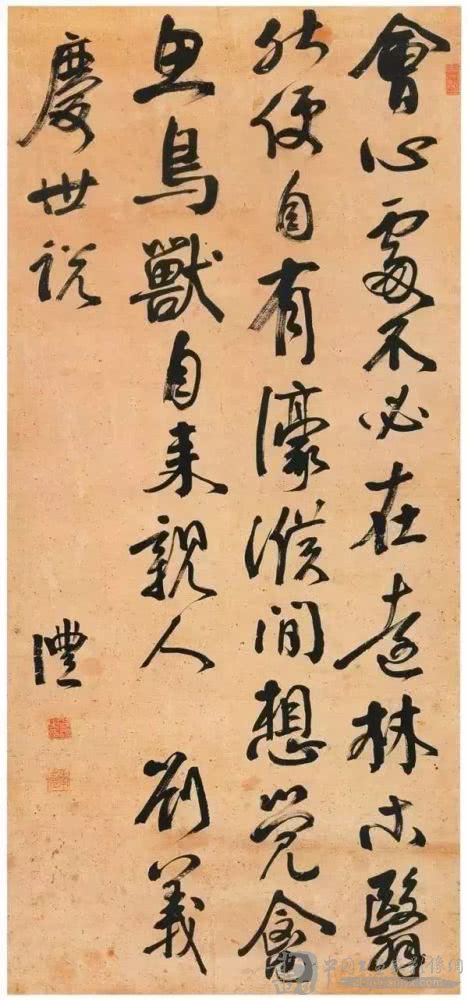 會心處不必在遠林木翳
然便自有濠濮間想覺禽
魚鳥獸自来親人 劉義
慶世說 澧